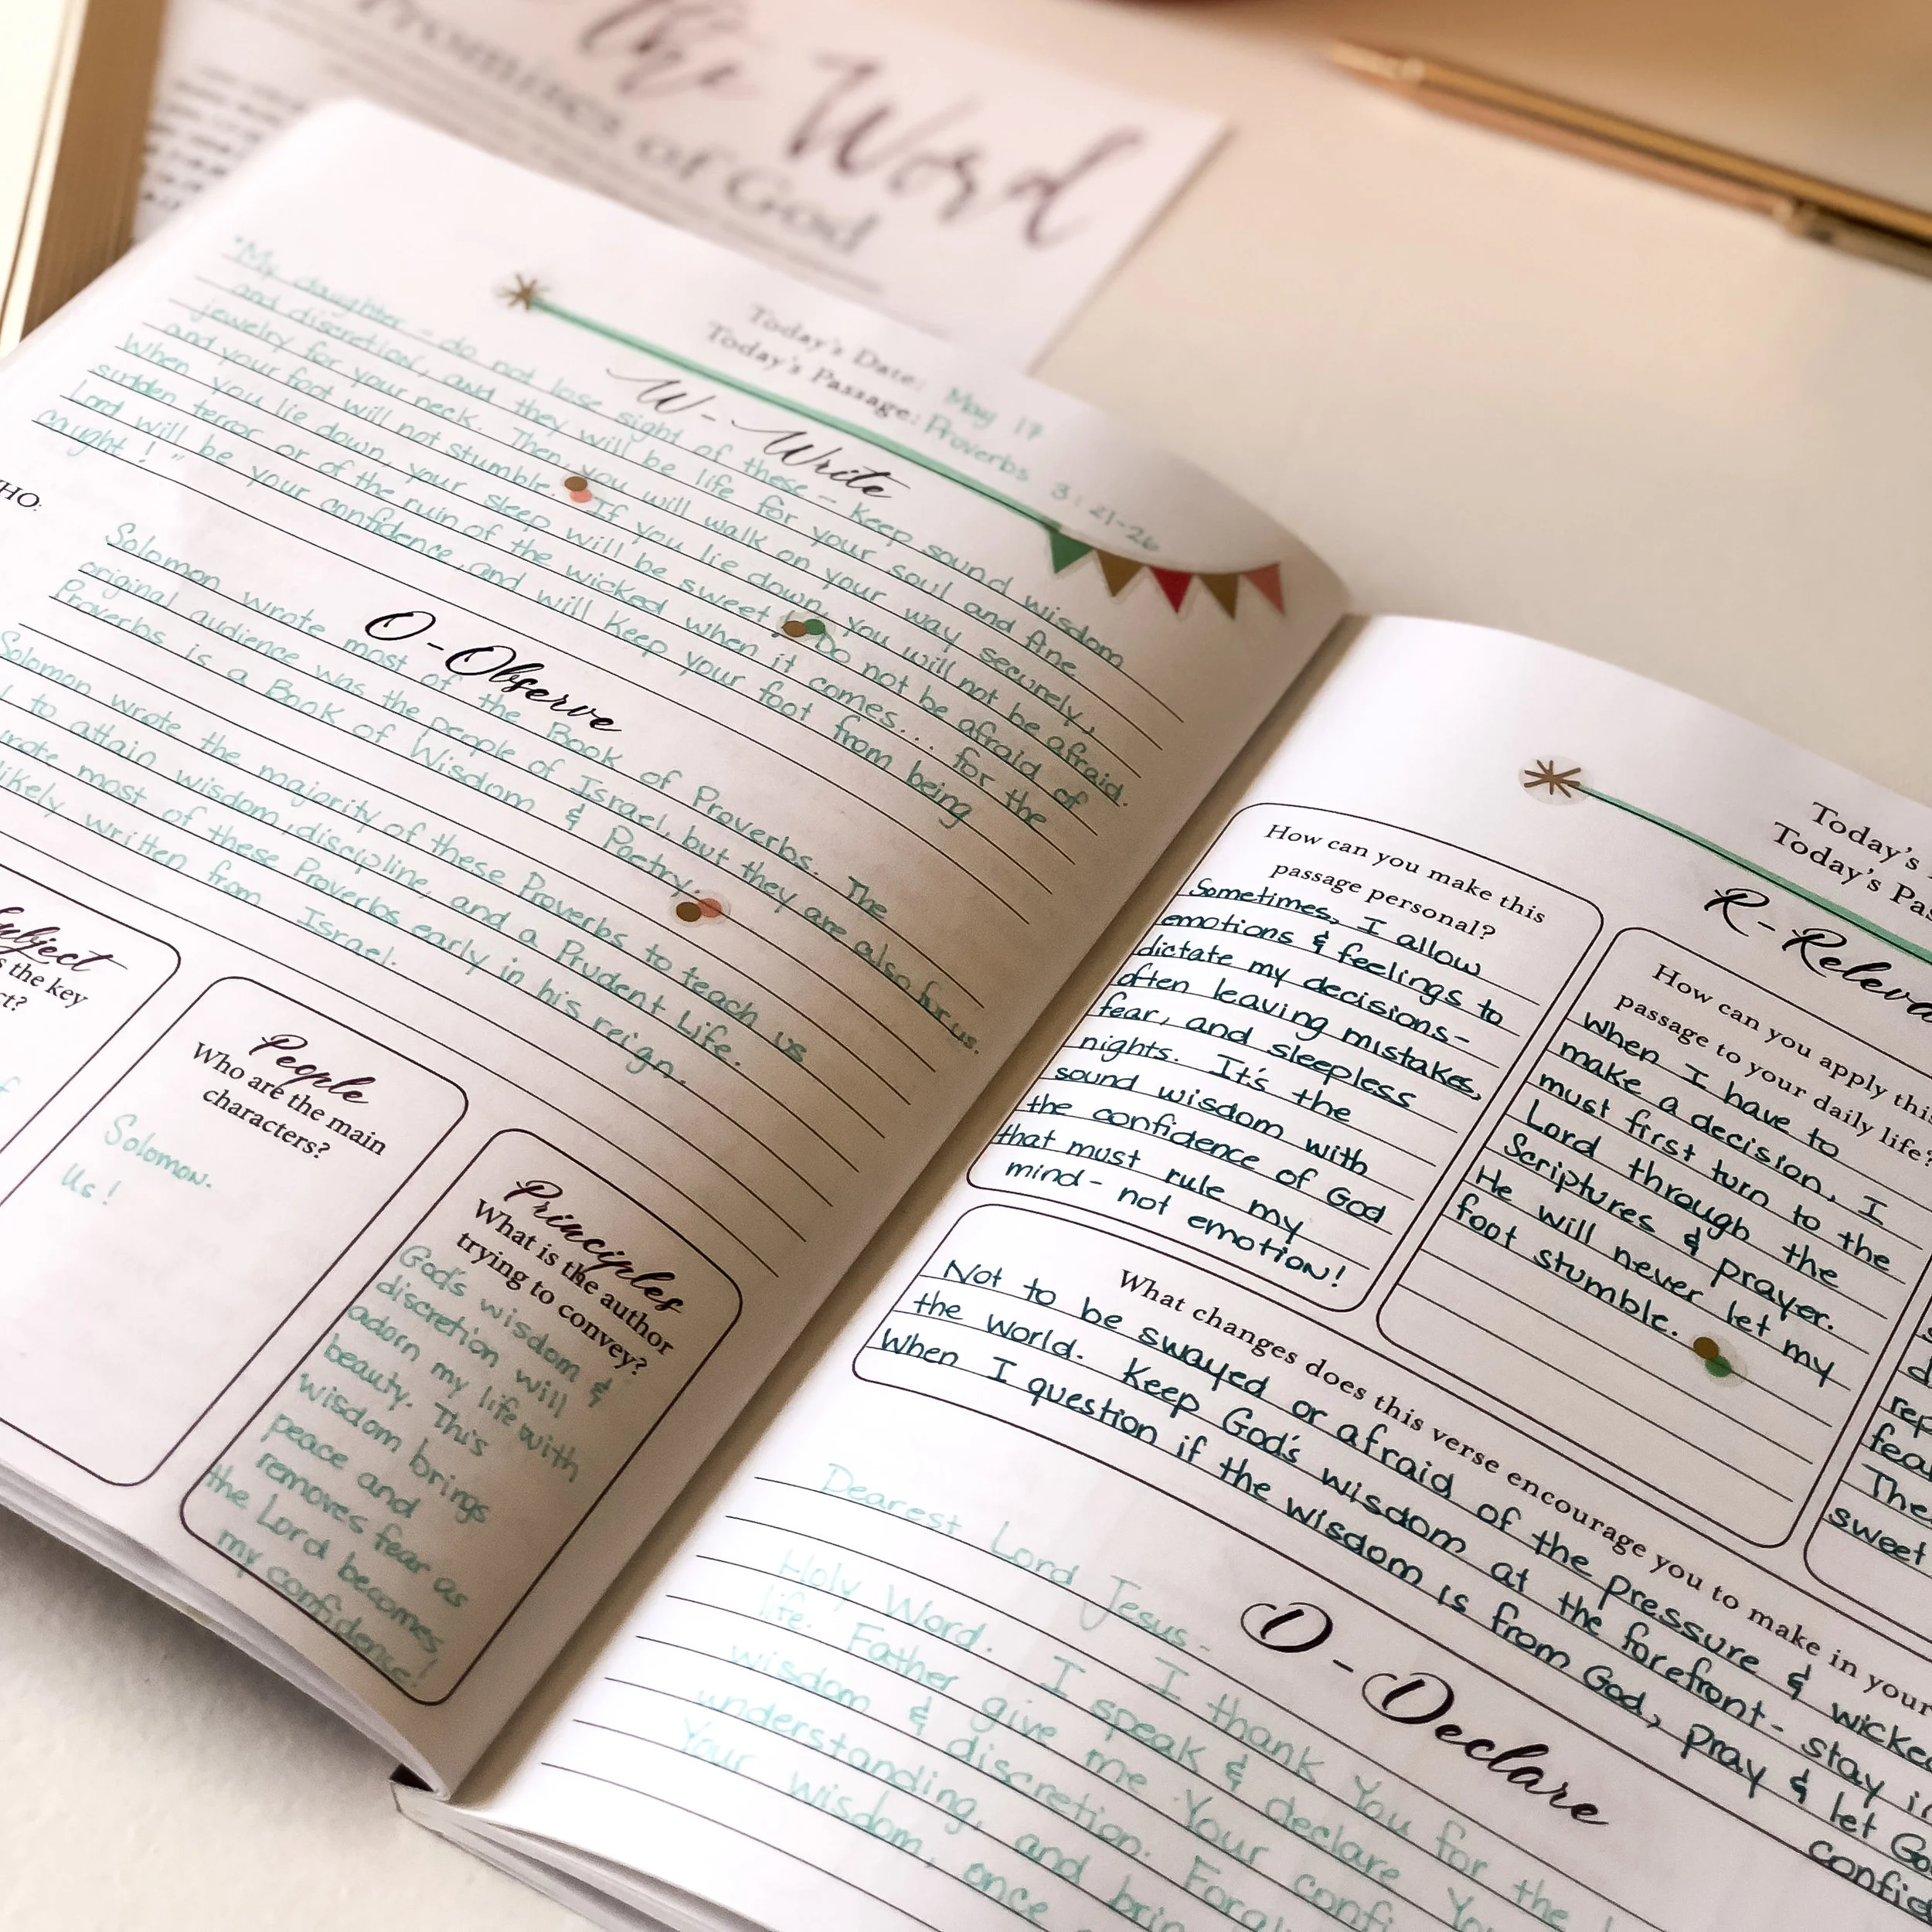 the Word
Promises of God
Today's Date: May 17
Today's Passage: Proverbs 3:21-26
W - Write
"My daughter - do not lose sight of these - Keep sound wisdom
and discretion, and they will be life for your soul and fine
jewelry for your neck. Then you will walk on your way securely,
and your foot will not stumble. If you lie down, you will not be afraid.
When you lie down, your sleep will be sweet. Do not be afraid of
sudden terror or of the ruin of the wicked when it comes... for the
Lord will be your confidence and will keep your foot from being
caught!"
O - Observe
HO:
Solomon wrote most of the Book of Proverbs. The
original audience was the people of Israel, but they are also for us.
Proverbs is a Book of Wisdom & Poetry.
Solomon wrote the majority of these Proverbs to teach us
to attain wisdom, discipline, and a Prudent Life.
most of these Proverbs early in his reign.
likely written from Israel.
Subject
s the key
ct?
People
Who are the main
characters?
Solomon.
Us!
Principles
What is the author
trying to convey?
God's wisdom &
discretion will
adorn my life with
beauty. This
wisdom brings
peace and
removes fear as
the Lord becomes
my confidence!
Today's
Today's Pas
R - Releva
How can you make this
passage personal?
Sometimes, I allow
emotions & feelings to
dictate my decisions-
often leaving mistakes,
fear, and sleepless
nights. It's the
sound wisdom with
the confidence of God
that must rule my
mind - not emotion!
How can you apply this
passage to your daily life?
When I have to
make a decision, I
must first turn to the
Lord through the
Scriptures & prayer.
He will never let my
foot stumble.
rep
fea
The
sweet
What changes does this verse encourage you to make in your
Not to be swayed or afraid of the pressure & wicke
the world. Keep God's wisdom at the forefront - stay in
When I question if the wisdom is from God, pray & let Go
confid
D - Declare
Dearest Lord Jesus - I thank You for the
Holy Word. I speak & declare Yo
life. Father give me Your confi
wisdom & discretion. Forgi
understanding, and brin
Your wisdom, once